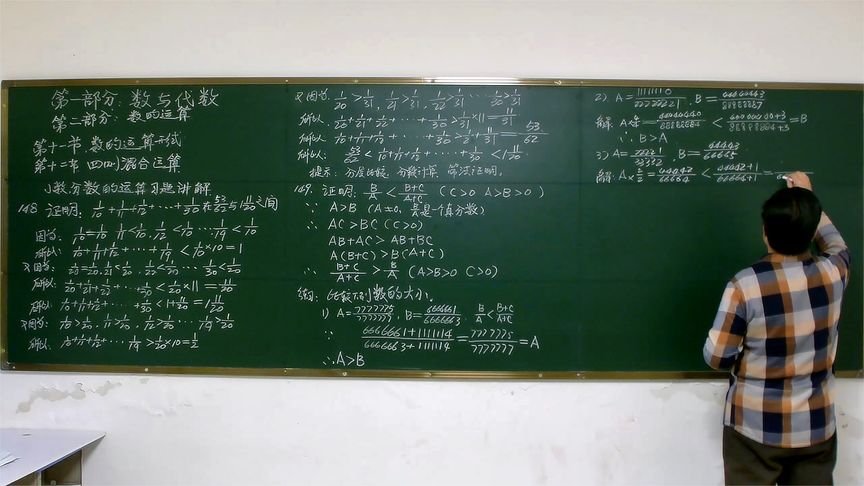 第一部分：数与代数
第二部分：数的运算
第十一节 数的运算形式
第十二节 四则混合运算
小数分数的运算习题讲解
148. 证明：1/10+1/11+1/12+⋯+1/30在53/62与1 11/20之间
因为：1/10=1/10, 1/11<1/10, 1/12<1/10⋯1/19<1/10
所以：1/10+1/11+1/12+⋯+1/19<1/10×10=1
又因为：1/20=1/20, 1/21<1/20, 1/22<1/20⋯1/30<1/20
所以：1/20+1/21+1/22+⋯+1/30<1/20×11=11/20
所以：1/10+1/11+1/12+⋯+1/30<1+11/20=1 11/20
又因为：1/10>1/20, 1/11>1/20, 1/12>1/20⋯1/19>1/20
所以：1/10+1/11+1/12+⋯1/19>1/20×10=1/2
又因为：1/20>1/31, 1/21>1/31, 1/22>1/31⋯1/30>1/31
所以：1/20+1/21+1/22+⋯+1/30>1/31×11=11/31
所以：1/10+1/11+1/12+⋯+1/30>1/2+11/31=53/62
所以：53/62<1/10+1/11+1/12+⋯+1/30<1 11/20
提示：分层比较，分数计算
149. 证明：B/A<B+C/A+C (C>0 A>B>0)
∵ A>B (A≠0, B/A是一个真分数)
∴ AC>BC (C>0)
AB+AC>AB+BC
A(B+C)>B(A+C)
∴ B+C/A+C>B/A (A>B>0 C>0)
练习：比较下列数的大小。
1) A=7777775/7777777, B=6666661/6666663, B/A<B+C/A+C
∵ 6666661+1111114/6666663+1111114=7777775/7777777=A
∴A>B
2) A=11111110/22222221, B=44444443/88888887
∴ B>A
3) A=22221/33332, B=44443/66665
解：A×2/2=44442/66664<44442+1/66664+1=